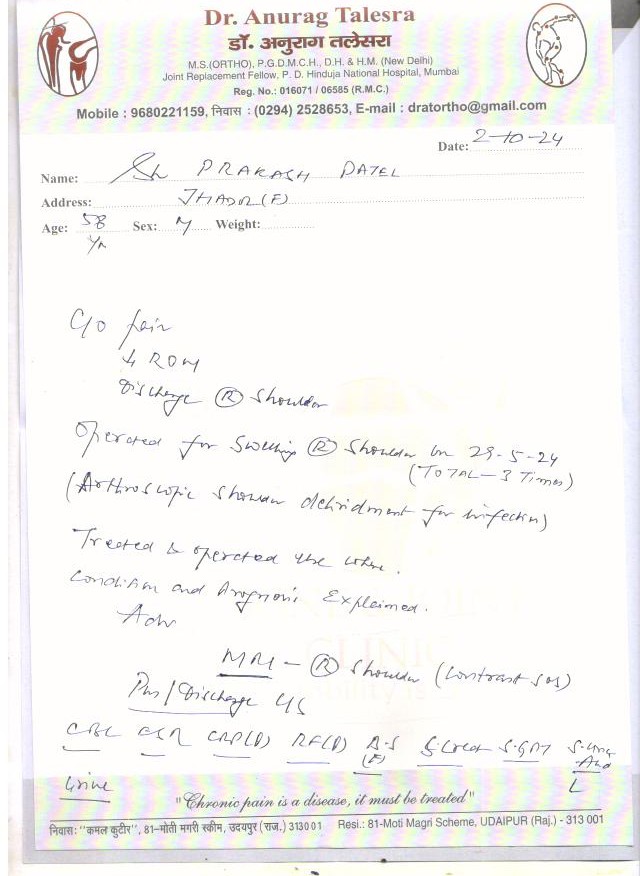 Dr. Anurag Talesra
डॉ. अनुराग तलेसरा
M.S.(ORTHO), P.G.D.M.C.H., D.H. & H.M. (New Delhi)
Joint Replacement Fellow, P. D. Hinduja National Hospital, Mumbai
Reg. No.: 016071 / 06585 (R.M.C.)
Mobile : 9680221159, निवास : (0294) 2528653, E-mail : dratortho@gmail.com
Date: 2-10-24
Name: Sh PRAKASH PATEL
Address: JHADOL (F)
Age: 58 Yr Sex: M Weight:
C/o pain
↓ ROM
Discharge (R) Shoulder
Operated for Swelling (R) Shoulder on 29-5-24
(TOTAL - 3 Times)
(Arthroscopic shoulder debridment for infection)
Treated & operated else where.
Condition and Prognosis Explained.
Adv
MRI - (R) Shoulder (Contrast SOS)
Pus / Discharge C/S
CBC ESR CRP(Q) RF(Q) B.S (F) S. Creat S. GPT S. Uric Acid
Urine
"Chronic pain is a disease, it must be treated"
निवास: "कमल कुटीर", 81-मोती मगरी स्कीम, उदयपुर (राज.) 313001 Resi.: 81-Moti Magri Scheme, UDAIPUR (Raj.) - 313 001